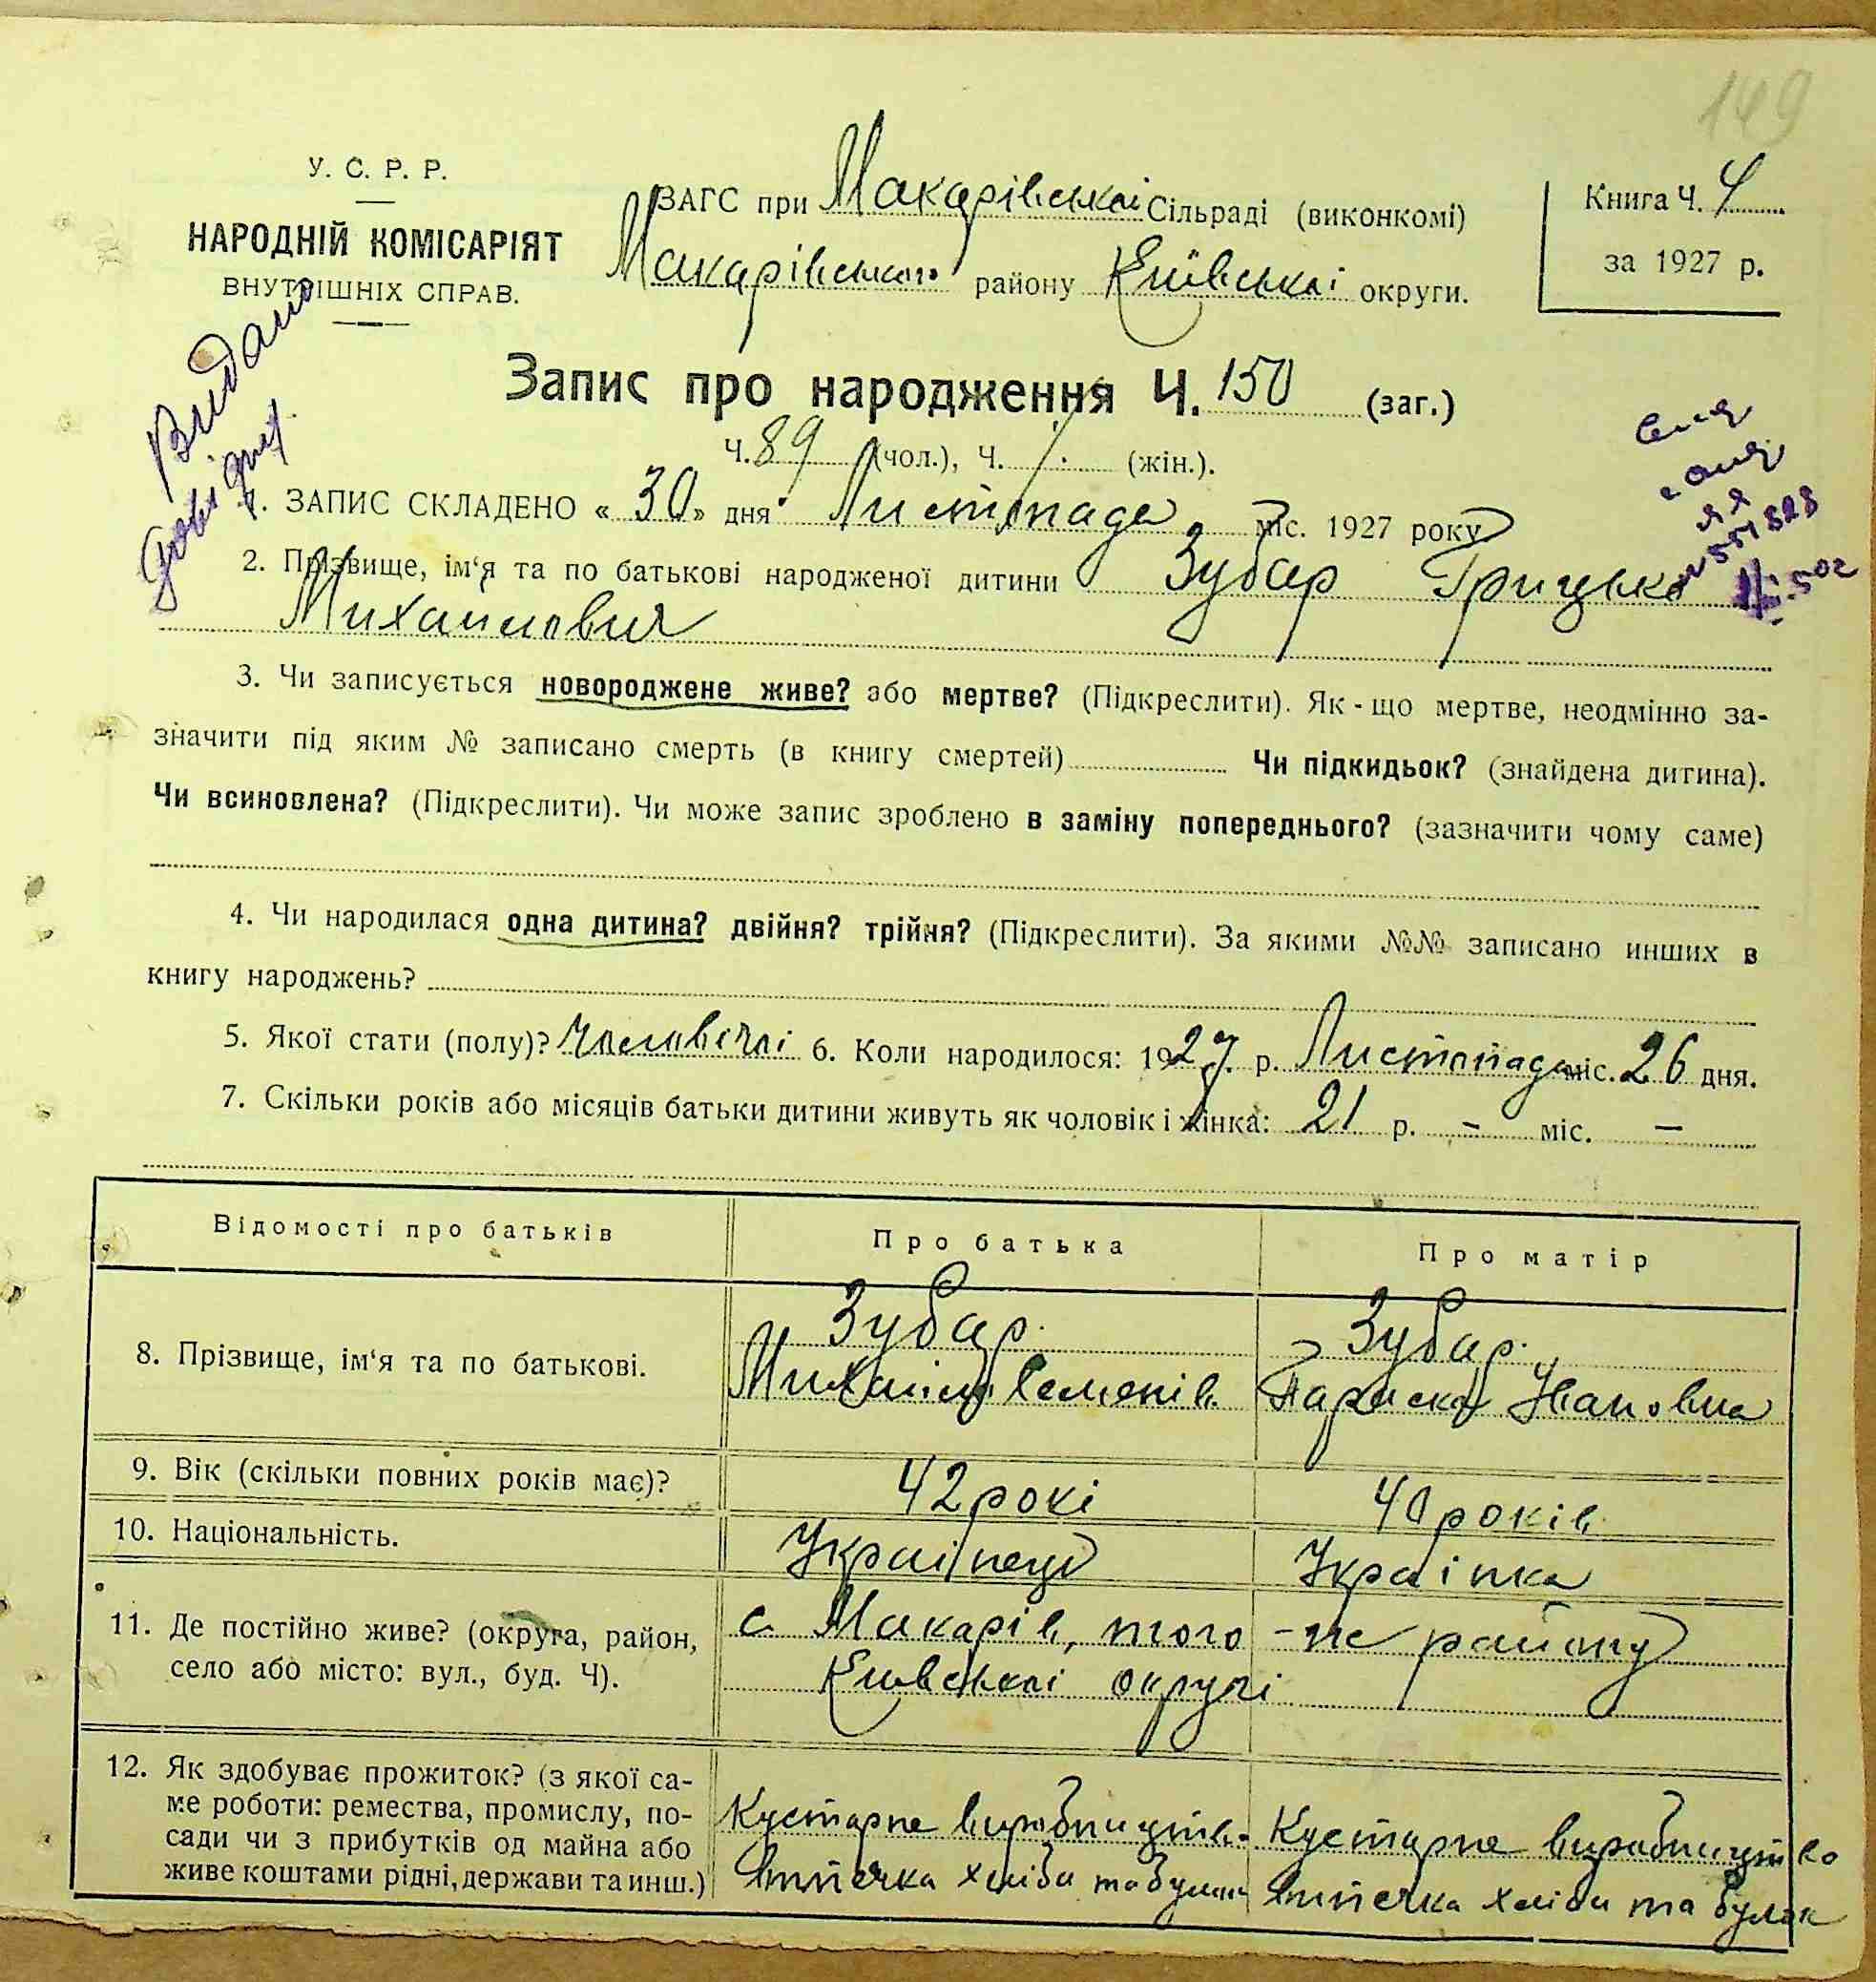 149
У. С. Р. Р.
НАРОДНІЙ КОМІСАРІЯТ
ВНУТРІШНІХ СПРАВ.
ЗАГС при Макарівській Сільраді (виконкомі)
Макарівського району Київської округи.
Книга Ч. 4
за 1927 р.
Видано
Запис про народження Ч. 150 (заг.)
Ч. 89 (чол.), Ч. (жін.).
1. ЗАПИС СКЛАДЕНО « 30 » дня Листопада міс. 1927 року
2. Прізвище, ім‘я та по батькові народженої дитини Зубар Грицько
Михайлович
3. Чи записується новороджене живе? або мертве? (Підкреслити). Як-що мертве, неодмінно за-
значити під яким № записано смерть (в книгу смертей) Чи підкидьок? (знайдена дитина).
Чи всиновлена? (Підкреслити). Чи може запис зроблено в заміну попереднього? (зазначити чому саме)
4. Чи народилася одна дитина? двійня? трійня? (Підкреслити). За якими №№ записано инших в
книгу народжень?
5. Якої стати (полу)? Чоловічої 6. Коли народилося: 1927 р. Листопада міс. 26 дня.
7. Скільки років або місяців батьки дитини живуть як чоловік і жінка: 21 р. – міс. –
Відомості про батьків Про батька Про матір
8. Прізвище, ім‘я та по батькові.
Зубар
Михайло Семенів
Зубар
Параска Івановна
9. Вік (скільки повних років має)? 42 рокі 40 років
10. Національність. Украінець Украінка
11. Де постійно живе? (округа, район,
село або місто: вул., буд. Ч).
с. Макарів, того-же району
Київськоі округи
12. Як здобуває прожиток? (з якої са-
ме роботи: ремества, промислу, по-
сади чи з прибутків од майна або
живе коштами рідні, держави та инш.)
Кустарне виробництво
випечка хліба та булок
Кустарне виробництво
випечка хліба та булок